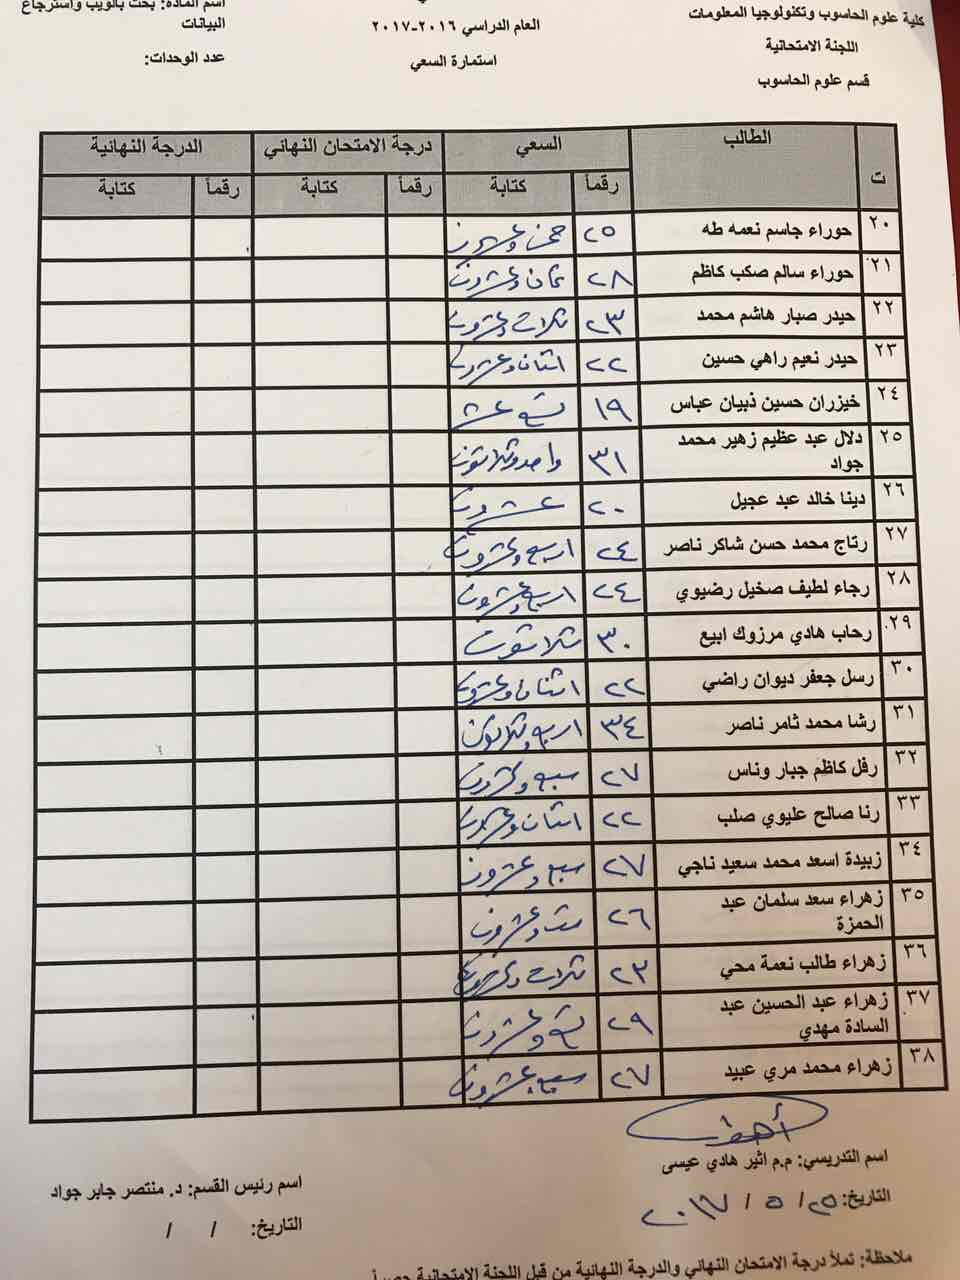 كلية علوم الحاسوب وتكنولوجيا المعلومات
اللجنة الامتحانية
قسم علوم الحاسوب
العام الدراسي ٢٠١٦-٢٠١٧
استمارة السعي
اسم المادة: بحث بالويب واسترجاع
البيانات
عدد الوحدات:
ت الطالب السعي درجة الامتحان النهائي الدرجة النهائية
رقماً كتابة رقماً كتابة رقماً كتابة
٢٠ حوراء جاسم نعمه طه ٢٥ خمس وعشرون
٢١ حوراء سالم صكب كاظم ٢٨ ثمان وعشرون
٢٢ حيدر صبار هاشم محمد ٢٣ ثلاث وعشرون
٢٣ حيدر نعيم راهي حسين ٢٢ اثنان وعشرون
٢٤ خيزران حسين ذبيان عباس ١٩ تسع عشر
٢٥ دلال عبد عظيم زهير محمد
جواد ٣١ واحد وثلاثون
٢٦ دينا خالد عبد عجيل ٢٠ عشرون
٢٧ رتاج محمد حسن شاكر ناصر ٢٤ اربع وعشرون
٢٨ رجاء لطيف صخيل رضيوي ٢٤ اربع وعشرون
٢٩ رحاب هادي مرزوك ابيع ٣٠ ثلاثون
٣٠ رسل جعفر ديوان راضي ٢٢ اثنان وعشرون
٣١ رشا محمد ثامر ناصر ٣٤ اربع وثلاثون
٣٢ رفل كاظم جبار وناس ٢٧ سبع وعشرون
٣٣ رنا صالح عليوي صلب ٢٢ اثنان وعشرون
٣٤ زبيدة اسعد محمد سعيد ناجي ٢٧ سبع وعشرون
٣٥ زهراء سعد سلمان عبد
الحمزة ٢٦ ست وعشرون
٣٦ زهراء طالب نعمة محي ٢٣ ثلاث وعشرون
٣٧ زهراء عبد الحسين عبد
السادة مهدي ٢٩ تسع وعشرون
٣٨ زهراء محمد مري عبيد ٢٧ سبع وعشرون
اسم التدريسي: م.م اثير هادي عيسى
التاريخ: ٢٥/ ٥ / ٢٠١٧
اسم رئيس القسم: د. منتصر جابر جواد
التاريخ: / /
ملاحظة: تملأ درجة الامتحان النهائي والدرجة النهائية من قبل اللجنة الامتحانية حصراً